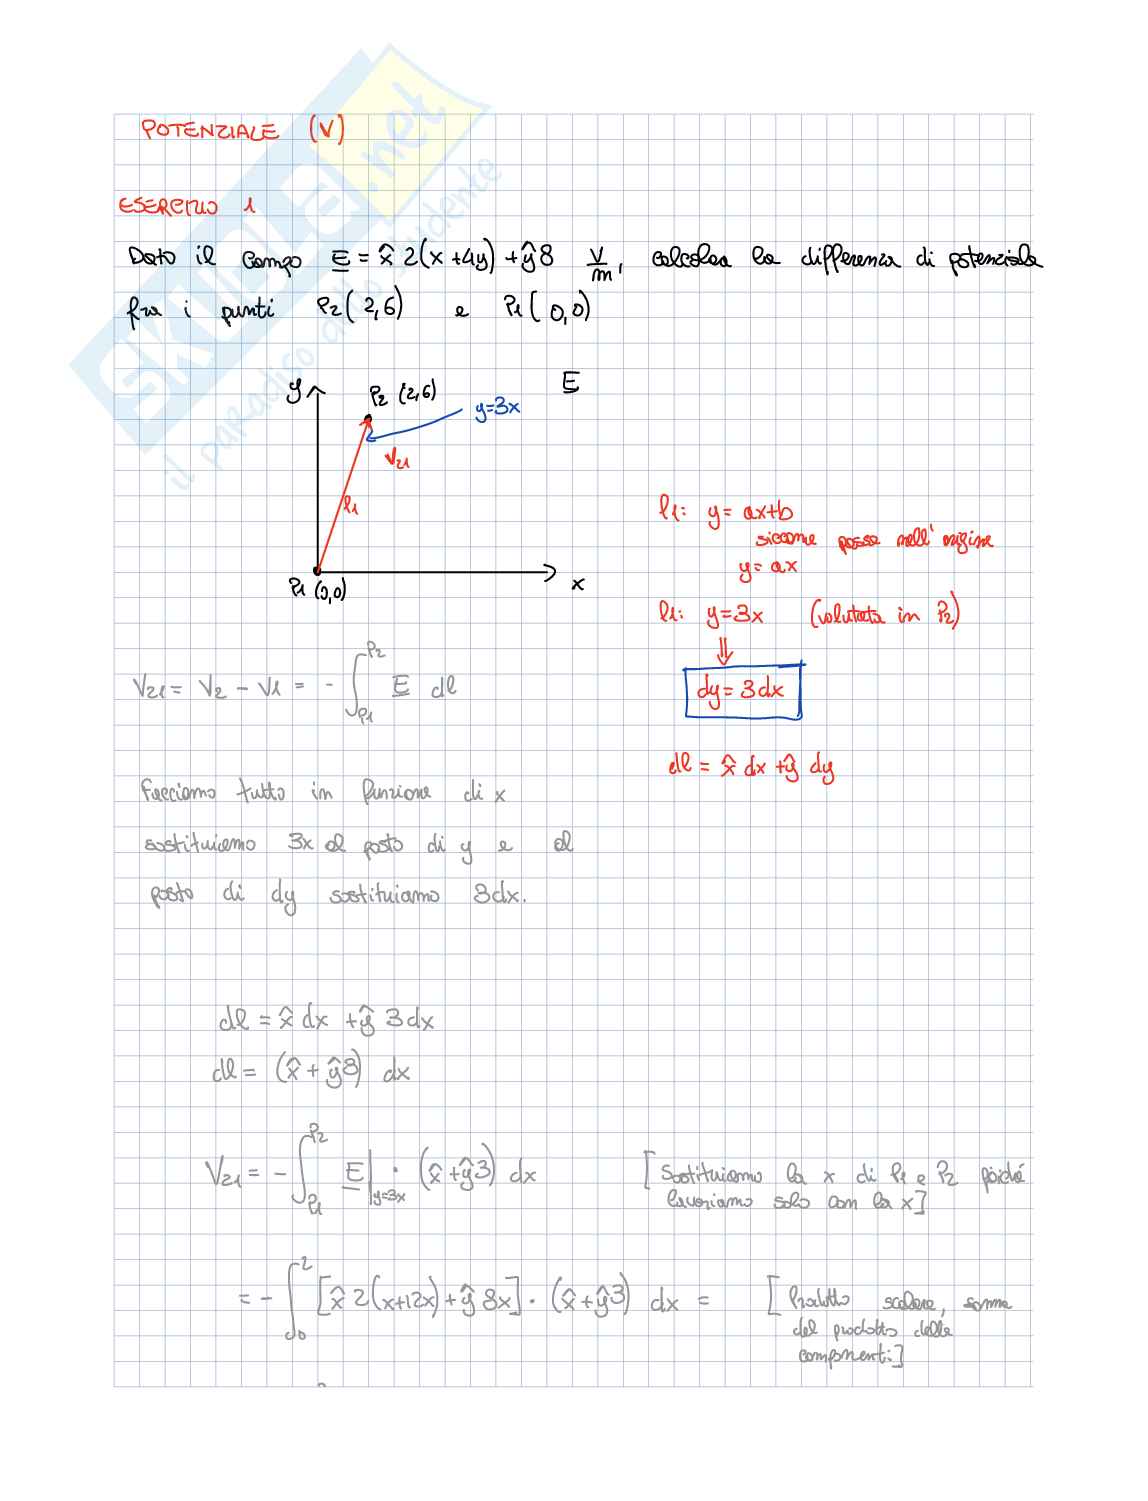 SKUOLA.net
il paradiso dello studente
POTENZIALE (V)
ESERCIZIO 1
Dato il campo E = x̂ 2(x+4y) + ŷ8 V/m, calcolare la differenza di potenziale
fra i punti P2(2,6) e P1(0,0)
y
P2 (2,6)
E
y=3x
V21
l1
P1 (0,0)
x
l1: y = ax+b
siccome passa nell'origine
y = ax
l1: y=3x (valutata in P2)
⇓
dy = 3dx
dl = x̂ dx + ŷ dy
V21 = V2 - V1 = - ∫_P1^P2 E dl
Facciamo tutto in funzione di x
sostituiamo 3x al posto di y e al
posto di dy sostituiamo 3dx.
dl = x̂ dx + ŷ 3dx
dl = (x̂ + ŷ3) dx
V21 = - ∫_P1^P2 E|y=3x · (x̂ + ŷ3) dx
[Sostituiamo la x di P1 e P2 poiché
lavoriamo solo con la x]
= - ∫_0^2 [x̂ 2(x+12x) + ŷ 8x] · (x̂ + ŷ3) dx =
[Prodotto scalare, somma
del prodotto delle
componenti]